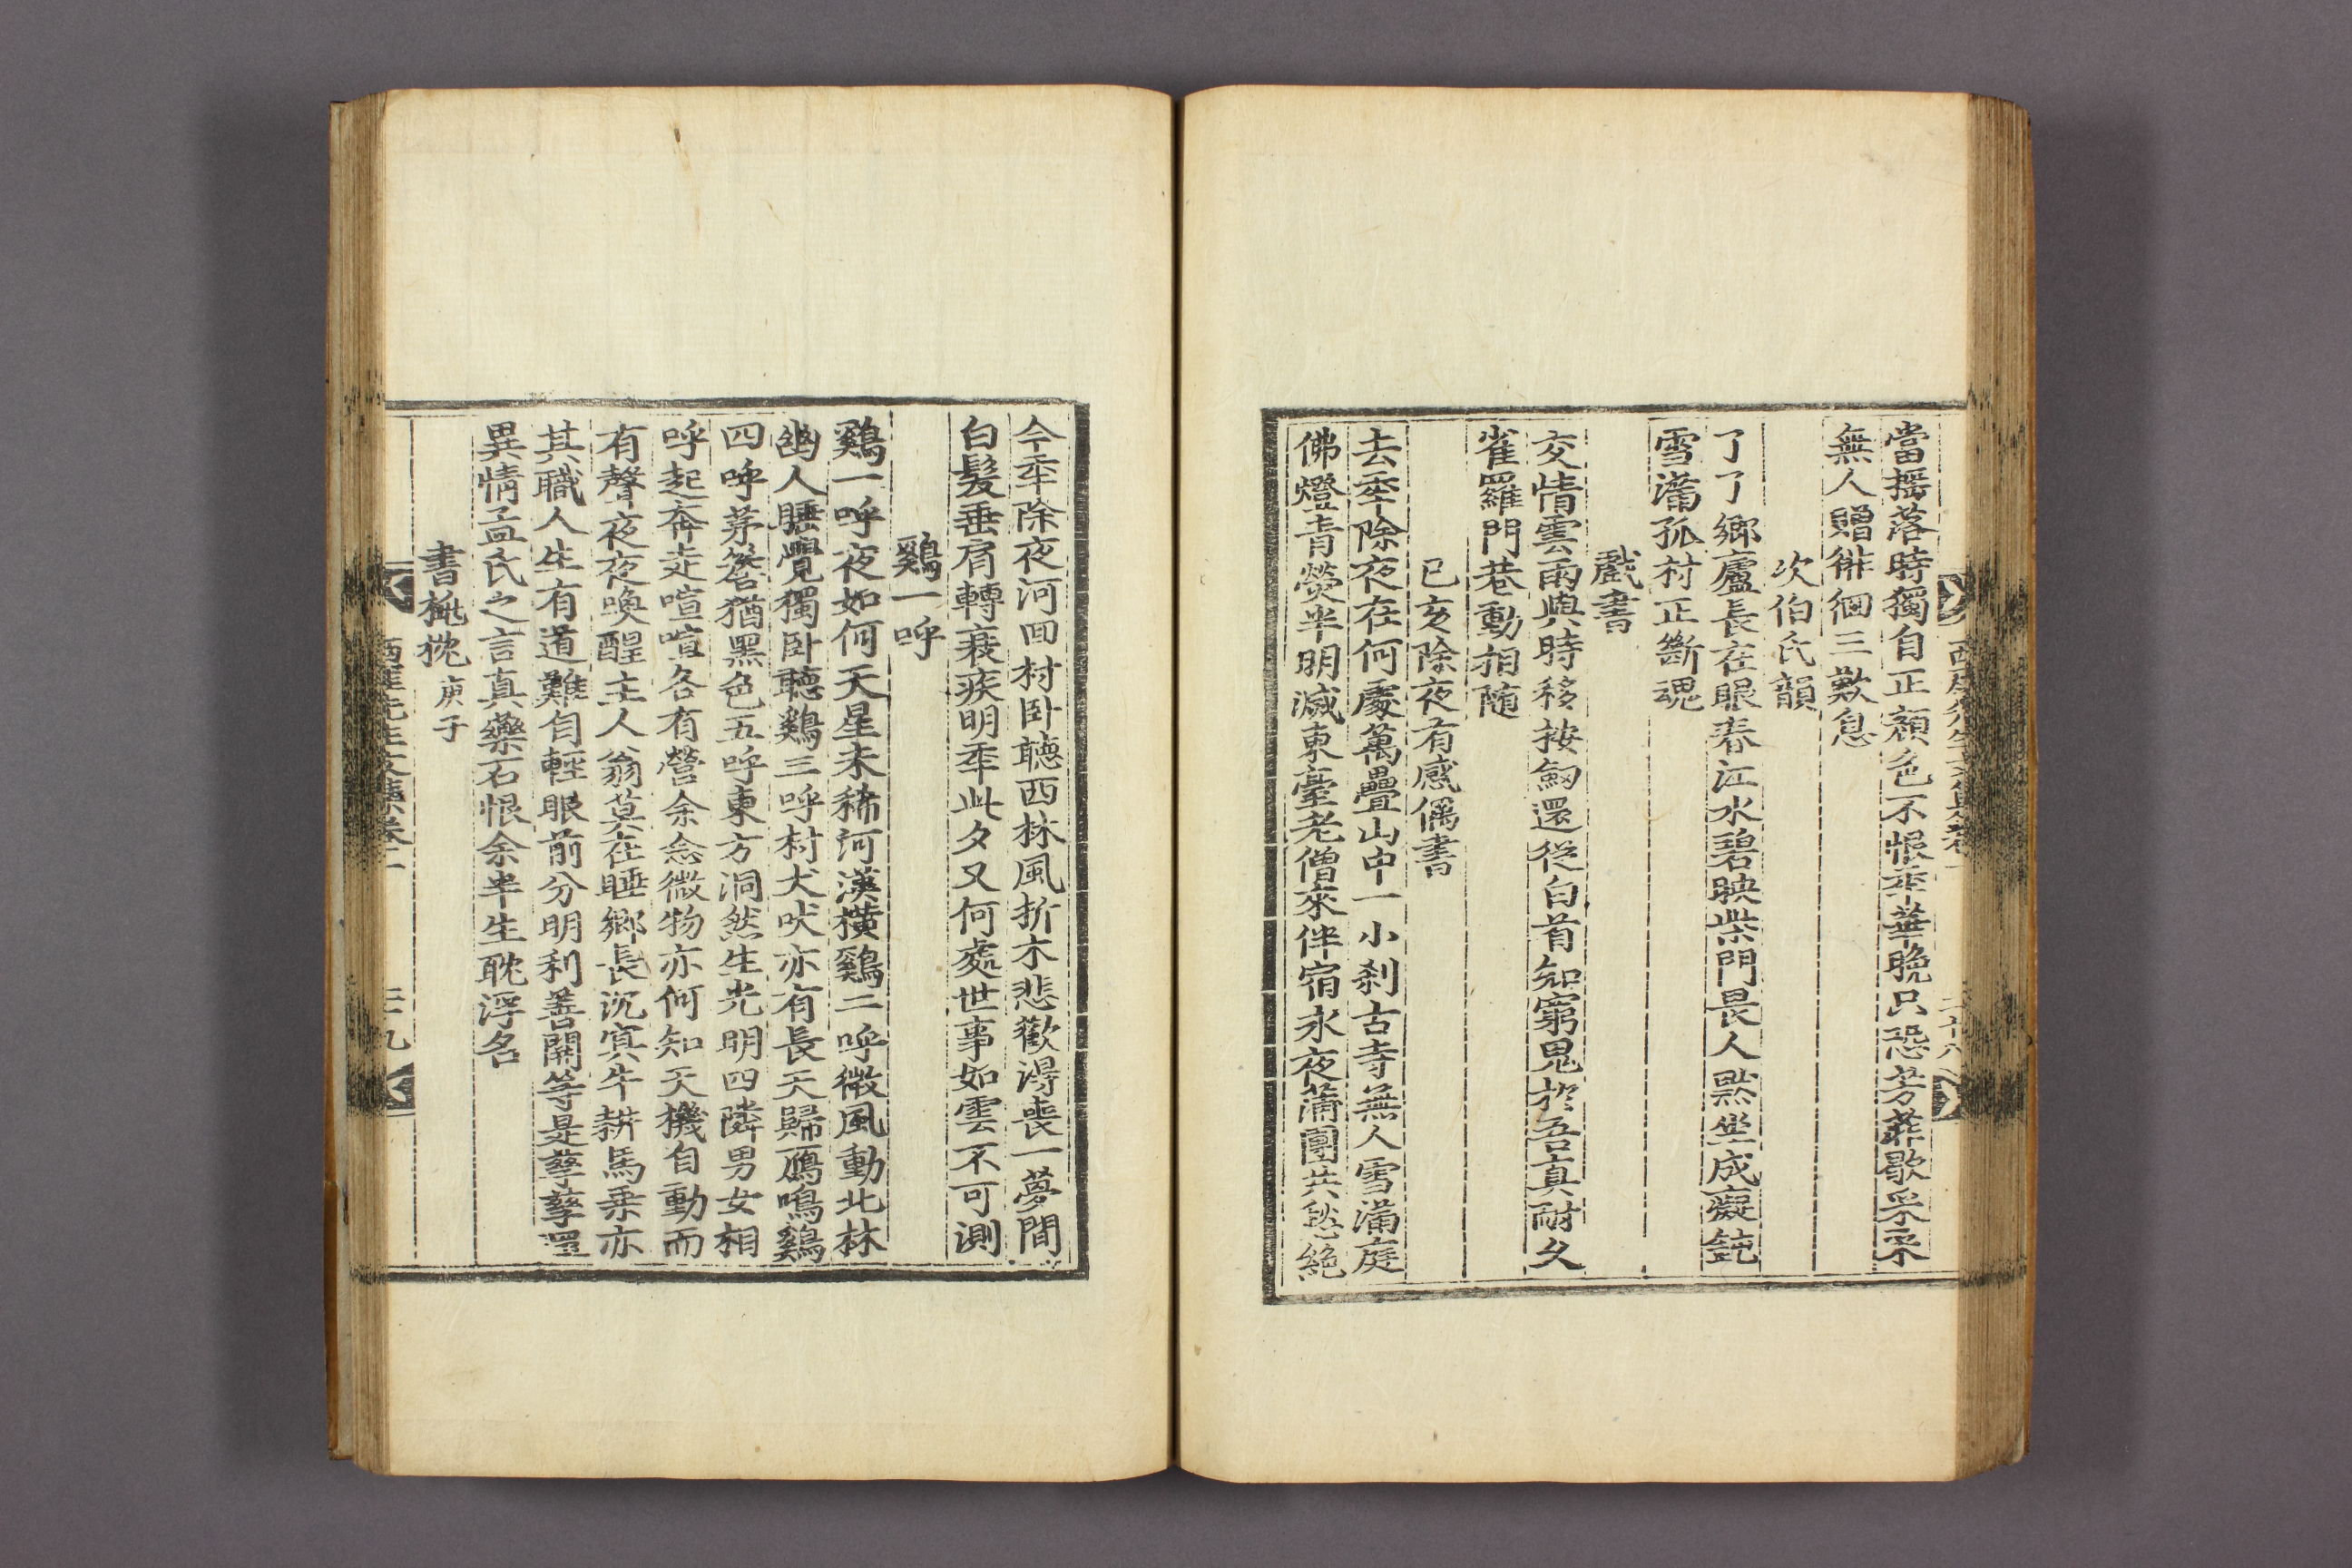 西厓先生文集卷一
二十八
當搖落時獨自正顏色不恨年華晚只恐芳菲歇采采
無人贈徘徊三歎息
次伯氏韻
了了鄉廬長在眼春江水碧映柴門畏人默坐成癡鈍
雪滿孤村正斷魂
戲書
交情雲雨與時移按劒還從白首知窮鬼於吾眞耐久
雀羅門巷動相隨
己亥除夜有感偶書
去年除夜在何處萬疊山中一小刹古寺無人雪滿庭
佛燈青熒半明滅東臺老僧來伴宿永夜蒲團共愁絶
今年除夜河回村臥聽西林風折木悲歡得喪一夢間
白髮垂肩轉衰疾明年此夕又何處世事如雲不可測
鷄一呼
鷄一呼夜如何天星未稀河漢橫鷄二呼微風動北林
幽人睡覺獨臥聽鷄三呼村犬吠亦有長天歸鴈鳴鷄
四呼茅簷猶黑色五呼東方洞然生光明四隣男女相
呼起奔走喧喧各有營余念微物亦何知天機自動而
有聲夜夜喚醒主人翁莫在睡鄉長沉冥牛耕馬乘亦
其職人生有道難自輕眼前分明利善關等是孳孳置
異情孟氏之言眞藥石恨余半生耽浮名
書挑枕 庚子
西厓先生文集卷一
二九